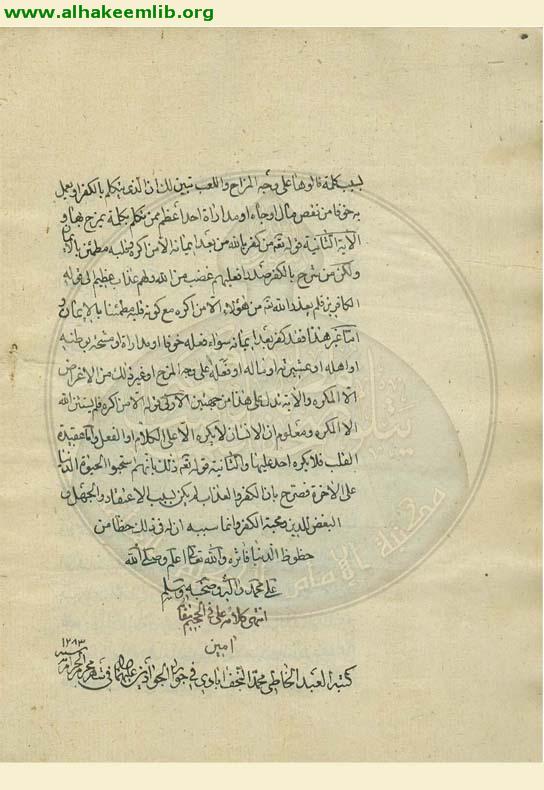 www.alhakeemlib.org
بسبب كلمة قالوها على وجه المزاح واللعب تبين لك ان الذي يتكلم بالكفر او يعمل
به خوفا من نقص مال او جاه او مداراة احد اعظم ممن تكلم بكلمة يمزح بها و
الاية الثانية قوله تعه من كفر بالله من بعد ايمانه الا من اكره وقلبه مطمئن بالايمان
ولكن من شرح بالكفر صدرا فعليهم غضب من الله ولهم عذاب عظيم الى قوله
الكافرين فلم يعذر الله تعه من هؤلاء الا من اكره مع كونه قلبه مطمئنا بالايمان و
اما غير هذا فقد كفر بعد ايمانه سواء فعله خوفا او مداراة او مشحة بوطنه
او اهله او عشيرته او ماله او فعله على وجه المزح او غير ذلك من الاغراض
الا المكره والاية تدل على هذا من جهتين الاولى قوله الا من اكره فلم يستثن الله
الا المكره ومعلوم ان الانسان لا يكره الا على الكلام والفعل واما عقيدة
القلب فلا يكره احد عليها والثانية قوله تعه ذلك بانهم ستحبوا الحيوة الدنيا
على الاخرة فصرح بان الكفر والعذاب لم يكن بسبب الاعتقاد والجهل و
البغض للدين ومحبة الكفر وانما سببه ان له في ذلك حظا من
حظوظ الدنيا فاثره والله تعالى اعلم وصلى الله
على محمد واله وصحبه وسلم
انتهى كلامه
امين
١٢١٣
كتبه العبد الخاطي محمد النجف ابادي في جوار الجوادين عليهما في شهر محرم الحرام